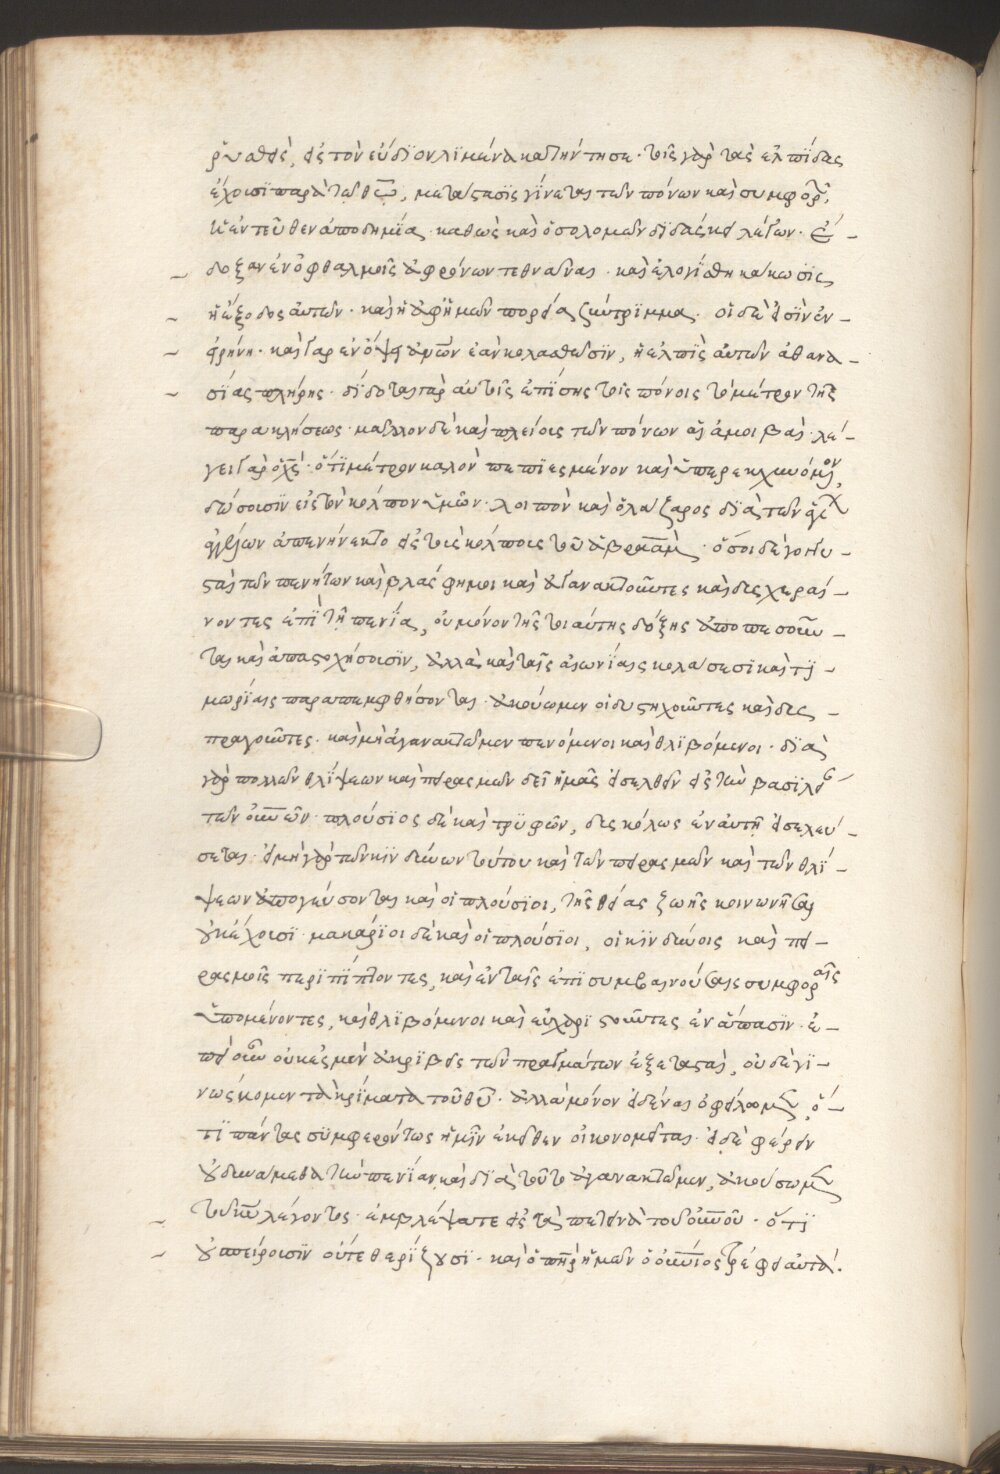 εἰς τὸν εὔδϊον λϊμένα κατήντησε· τοῖς γὰρ τὰς ἐλπίδας
ἔχουσι παρὰ τῶ θῶ, μετάστασϊς γίνεται τῶν πόνων καὶ συμφορῶν,
ἡ ἐντεῦθεν ἀποδημΐα· καθὼς καὶ ὁ σολομὼν δϊδάσκει λέγων· ἔ-
δοξαν ἐν ὀφθαλμοῖς ἀφρόνων τεθνάναι· καὶ ἐλογΐσθη κάκωσϊς
ἡ ἔξοδος αὐτῶν· καὶ ἡ ἀφ' ἡμῶν πορεία σύντρϊμμα· οἱ δὲ εἰσὶν ἐν
εἰρήνη· καὶ γὰρ ἐν ὄψει ἀνῶν ἐὰν κολασθῶσϊν, ἡ ἐλπὶς αὐτῶν ἀθανα-
σΐας πλήρης· δΐδοται γὰρ αὐτοῖς ἐπΐσης τοῖς πόνοις τὸ μέτρον τῆς
παρακλήσεως· μᾶλλον δὲ καὶ πλείους τῶν πόνων αἱ ἀμοιβαί· λέ-
γει γὰρ ὁ χς· ὅτϊ μέτρον καλὸν πεπϊεσμένον καὶ ὑπερεκχυνόμενον,
δώσουσϊν εἰς τὸν κόλπον ὑμῶν· λοιπὸν καὶ ὁ λάζαρος δϊὰ τῶν
ἀγγέλων ἀπενήνεκτο εἰς τοὺς κόλπους τοῦ ἀβραάμ· ὅσοι δὲ γογγυ-
σταὶ τῶν πενήτων καὶ βλάσφημοι καὶ ἀγανακτοῦντες καὶ δυσχεραί-
νοντες ἐπὶ τῆ πενΐα, οὐ μόνον τῆς τοιαύτης δόξης ἀποπεσοῦν-
ται καὶ ἀπαστοχήσουσϊν, ἀλλὰ καὶ ταῖς αἰωνΐαις κολάσεσϊ καὶ τϊ-
μωρΐαις παραπεμφθήσονται· ἀκούωμεν οἱ δυστηχοῦντες καὶ δυς-
πραγοῦντες· καὶ μὴ ἀγανακτῶμεν πενόμενοι καὶ θλϊβόμενοι· δϊὰ
γὰρ πολλῶν θλΐψεων καὶ πειρασμῶν δεῖ ἡμᾶς εἰσελθεῖν εἰς τὴν βασϊλεί
τῶν οὐνῶν· πλούσϊος δὲ καὶ τρϋφῶν, δυσκόλως ἐν αὐτῆ εἰσελεύ-
σεται· εἰ μὴ γὰρ τῶν κϊνδύνων τούτου καὶ τῶν πειρασμῶν καὶ τῶν θλΐ-
ψεων ἀπογεύσονται καὶ οἱ πλούσϊοι, τῆς θείας ζωῆς κοινωνῆσαι
οὐκ ἔχουσϊ· μακάρϊοι δὲ καὶ οἱ πλούσϊοι, οἱ κϊνδύνοις καὶ πει-
ρασμοῖς περϊπΐπτοντες, καὶ ἐν ταῖς ἐπισυμβαινούσαις συμφοραῖς
ὑπομένοντες, καὶ θλϊβόμενοι καὶ εὐχαριστοῦντες ἐν ἅπασϊν· ἐ-
πεὶ οὖν οὐκ ἐσμὲν ἀκρϊβεῖς τῶν πραγμάτων ἐξετασταί, οὐδὲ γϊ-
νώσκομεν τὰ κρΐματα τοῦ θυ· ἀλλὰ μόνον εἰδέναι ὀφείλομεν, ὅ-
τϊ πάντας συμφερόντως ἡμῖν ἐκεῖθεν οἰκονομεῖται· εἰ δὲ φέρειν
οὐ δυνάμεθα τὴν πενΐαν καὶ δϊὰ τοῦτο ἀγανακτῶμεν, ἀκούσωμεν
τοῦ κυ λέγοντος· ἐμβλέψατε εἰς τὰ πετεινὰ τοῦ οὐνοῦ· ὅτϊ
οὐ σπείρουσϊν οὔτε θερΐζουσϊ· καὶ ὁ πηρ ἡμῶν ὁ οὐνιος τρέφει αὐτά.